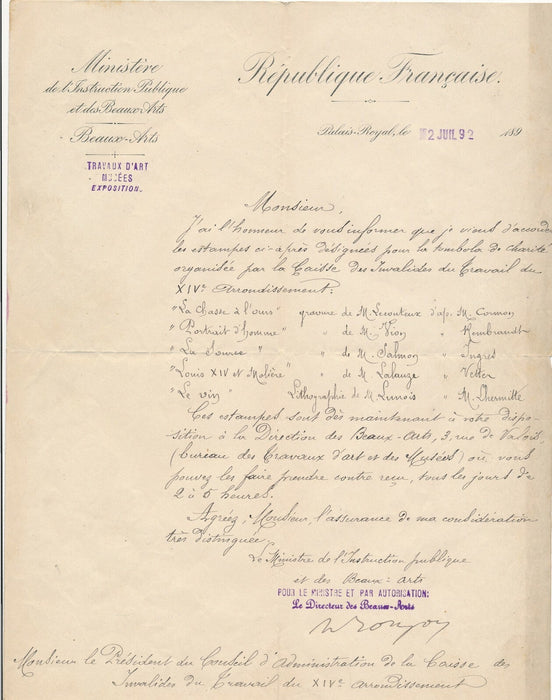 Ministère
de l'Instruction Publique
et des Beaux-Arts
Beaux-Arts
TRAVAUX D'ART
MUSÉES
EXPOSITION.
République Française.
Palais-Royal, le 2 JUIL 92 189
Monsieur,
J'ai l'honneur de vous informer que je viens d'accorder
les estampes ci-après désignées pour la tombola de charité
organisée par la Caisse des Invalides du Travail du
XIVe Arrondissement:
"La Chasse à l'ours" gravure de M. Lecouteux d'ap. M. Cormon
"Portrait d'homme" " de M. Vion " Rembrandt
"La Source" " de M. Salmon " Ingres
"Louis XIV et Molière" " de M. Lalauze " Vetter
"Le vin" Lithographie de M. Lunois " M. Lhermitte
Ces estampes sont dès maintenant à votre dispo-
sition à la Direction des Beaux-Arts, 3, rue de Valois,
(bureau des Travaux d'art et des Musées) où vous
pouvez les faire prendre contre reçu, tous les jours de
2 à 5 heures.
Agréez, Monsieur, l'assurance de ma considération
très distinguée.
Le Ministre de l'Instruction publique
et des Beaux-Arts
POUR LE MINISTRE ET PAR AUTORISATION:
Le Directeur des Beaux-Arts
Monsieur le Président du Conseil d'Administration de la Caisse des
Invalides du Travail du XIVe arrondissement